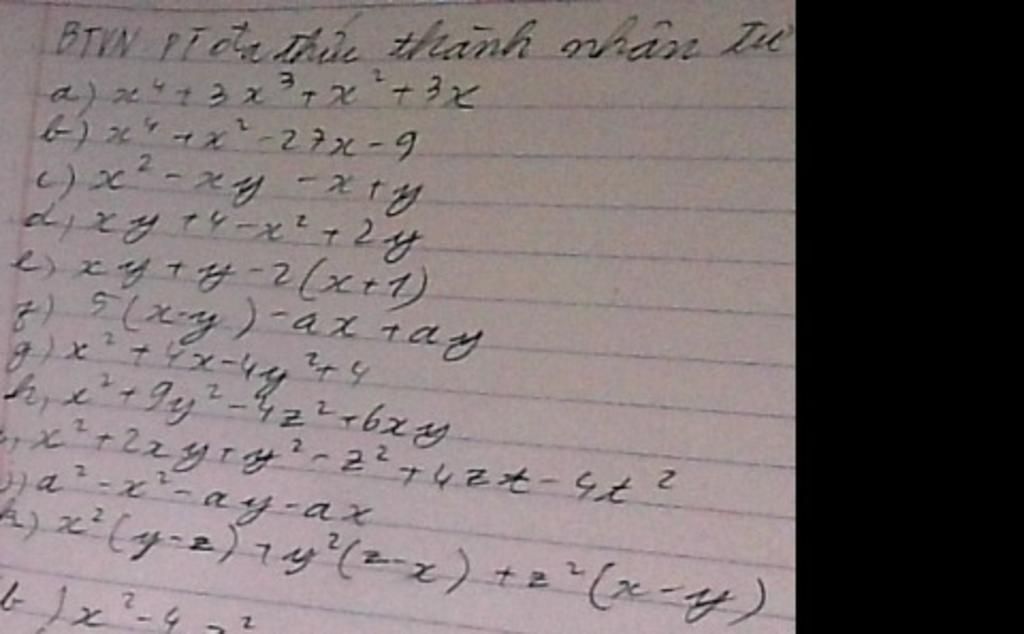 BTVN PT đa thức thành nhân tử
a) x⁴ + 3x³ + x² + 3x
b) x⁴ + x² - 27x - 9
c) x² - xy - x + y
d, xy + 4 - x² + 2y
e) xy + y - 2(x+1)
f) 5(x-y) - ax + ay
g) x² + 4x - 4y² + 4
h, x² + 9y² - 4z² + 6xy
, x² + 2xy + y² - z² + 4zt - 4t²
) a² - x² - ay - ax
k) x²(y-z) + y²(z-x) + z²(x-y)
) x² - 4